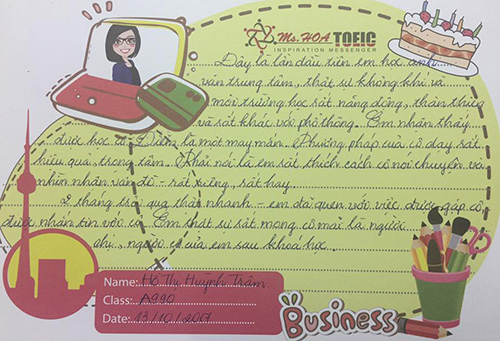 Ms. HOA TOEIC
INSPIRATION MESSENGER
Đây là lần đầu tiên em học anh
văn trung tâm, thật sự không khí và
môi trường học rất năng động, thân thiện
và rất khác với phổ thông. Em nhận thấy
được học cô Diễm là một may mắn. Phương pháp của cô dạy rất
hiệu quả, trọng tâm. Phải nói là em rất thích cách cô nói chuyện và
nhìn nhận vấn đề - rất riêng, rất hay.
2 tháng trôi qua thật nhanh - em đã quen với việc được gặp cô,
được nhắn tin với cô. Em thật sự rất mong cô mãi là người
chị, người cô của em sau khoá học.
Name: Hồ Thị Huỳnh Trâm
Class: A990
Date: 13/10/2017
Business